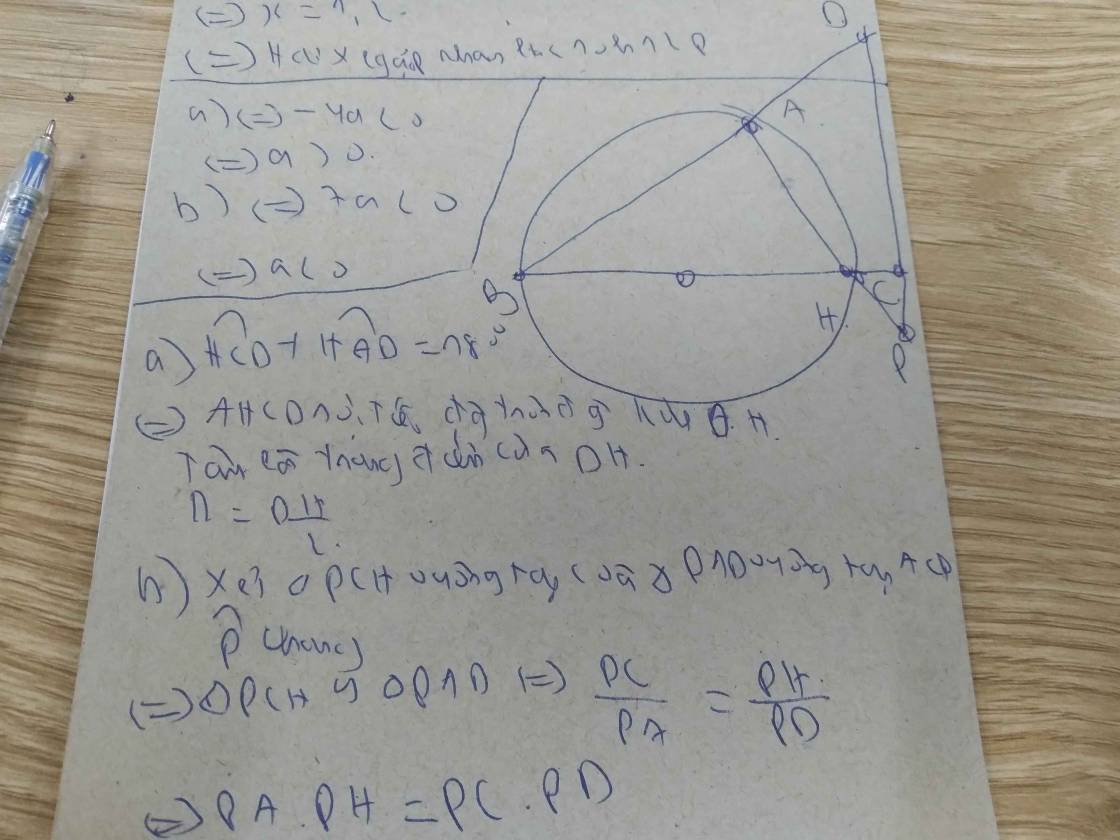 (=) x = 1, 2.
a) (=) -4a < 0
(=) a > 0.
b) (=) 7a < 0
(=) a < 0
D
A
B
O
H
C
P
a) HCD + HAD = 180
(=) AHCD nội tiếp đg tròn đg kính D.H.
Tâm là trung điểm của DH.
R = DH/2.
b) Xét ΔPCH vuông tại C và Δ PAD vuông tại A có
P chung
(=) ΔPCH ∽ ΔPAD (=) PC/PA = PH/PD
(=) PA.PH = PC.PD